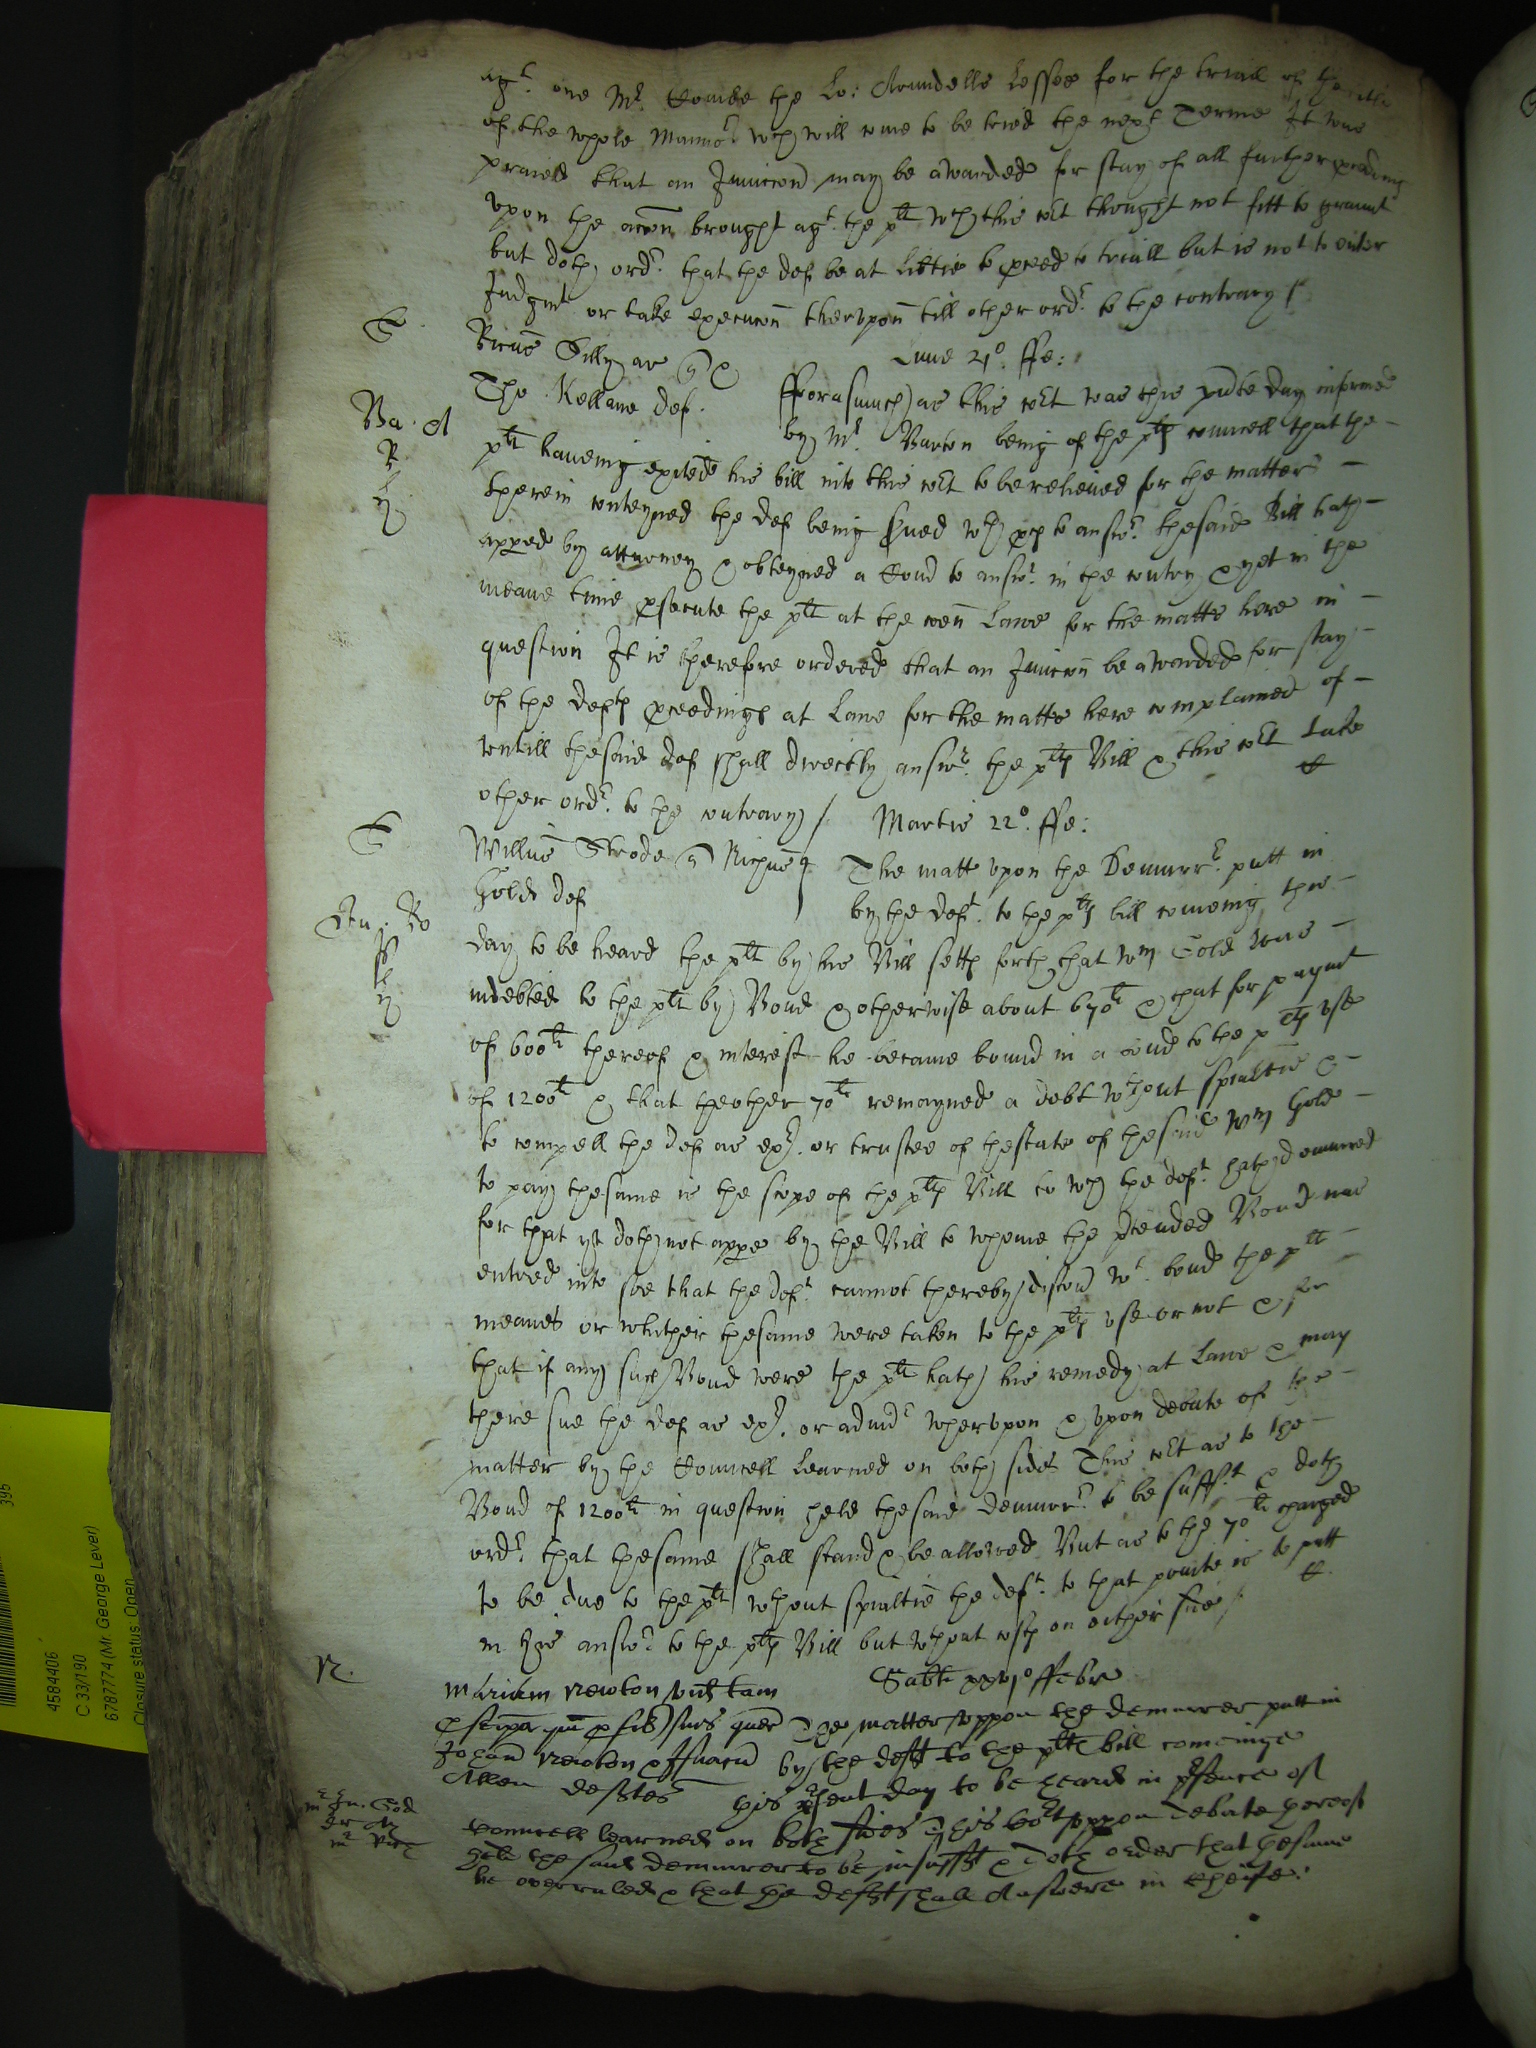 agt. one Mr. Combe the Lo: Arundells Lessee for the triall of the title
of the whole Mannor wch will come to be tried the next Terme It was
praied that an Iniuccon may be awarded for stay of all further pceedings
vpon the accon brought agt. the plt wch this cort thought not fitt to graunt
but doth ordr. that the def be at libtie to pceed to triall but is not to enter
Iudgmt or take execucon thervpon till other ordr. to the contrary /
S
Ricus Silly ar q
Lune 21o. ffe:
Tho. Kellane def.
fforasmuch as this cort was this pnte day informed
Ba. A
R
by Mr. Barton being of the plts councell that the
plt haueing exited his bill into this cort to be releiued for the matters
therein conteyned the def being serued wth pces to answr. thesaid Bill hath
appeed by attorney & obteyned a Comd to answr. in the contry & yet in the
meane time psecute the plt at the coen Lawe for the matts here in
question It is therefore ordered that an Iniuccon be awarded for stay
of the defts pceedings at Lawe for the matts here complained of
vntill thesaid def shall directly answr. the plts Bill & this cort take
other ordr. to the contrary /
Martis 22o. ffe:
S
Willus Strode q Richus
The mattr vpon the Demurrr. putt in
Gold def
by the deft. to the plts bill comeing this
Ju: Ro
day to be heard the plt by his Bill setts forth that Wm Gold was
indebted to the plt by Bond & otherwise about 670li & that for paymt
of 600li thereof & interest he became bound in a bond to the plts vse
of 1200li & that theother 70li remayned a debt wthout spialtie &
to compell the def as exr. or trustee of thestate of thesaid Wm Gold
to pay thesame is the scope of the plts Bill to wch the deft. hath demurred
for that yt doth not appe by the Bill to whome the ptended Bond was
entred into soe that the deft. cannot thereby discern wt. bond the plt
meanes or whither thesame were taken to the plts vse or not & for
that if any such Bond were the plt hath his remedy at Lawe & may
there sue the def as exr. or admr whervpon & vpon debate of the
matter by the Councell Learned on both sides This cort as to the
Bond of 1200li in question held thesaid demurrr. to be sufft & doth
ordr. that thesame shall stand & be allowed But as to the 70li charged
to be due to the plt wthout spialtie the deft. to that pointe is to putt
in his answr. to the plts Bill but wthout costs on either side /
N.
Sabti xxvjo ffebr
Mariam Newton vid tam
p seipa qm p fil suis quer
The matter vppon the demurrer putt in
Johan Newton &
by the deftes to the plts bill cominge
Allen deftes
this psent day to be heard in psence of
mr Jn. God
councell learned on both sides This Cort vppon debate hereof
held thesaid demurrer to be insufft & doth order that thesame
be overruled & that the deftes shall Answere in cheife:
395
4584406
C 33/190
6787774 (Mr George Lever)
Closure status: Open